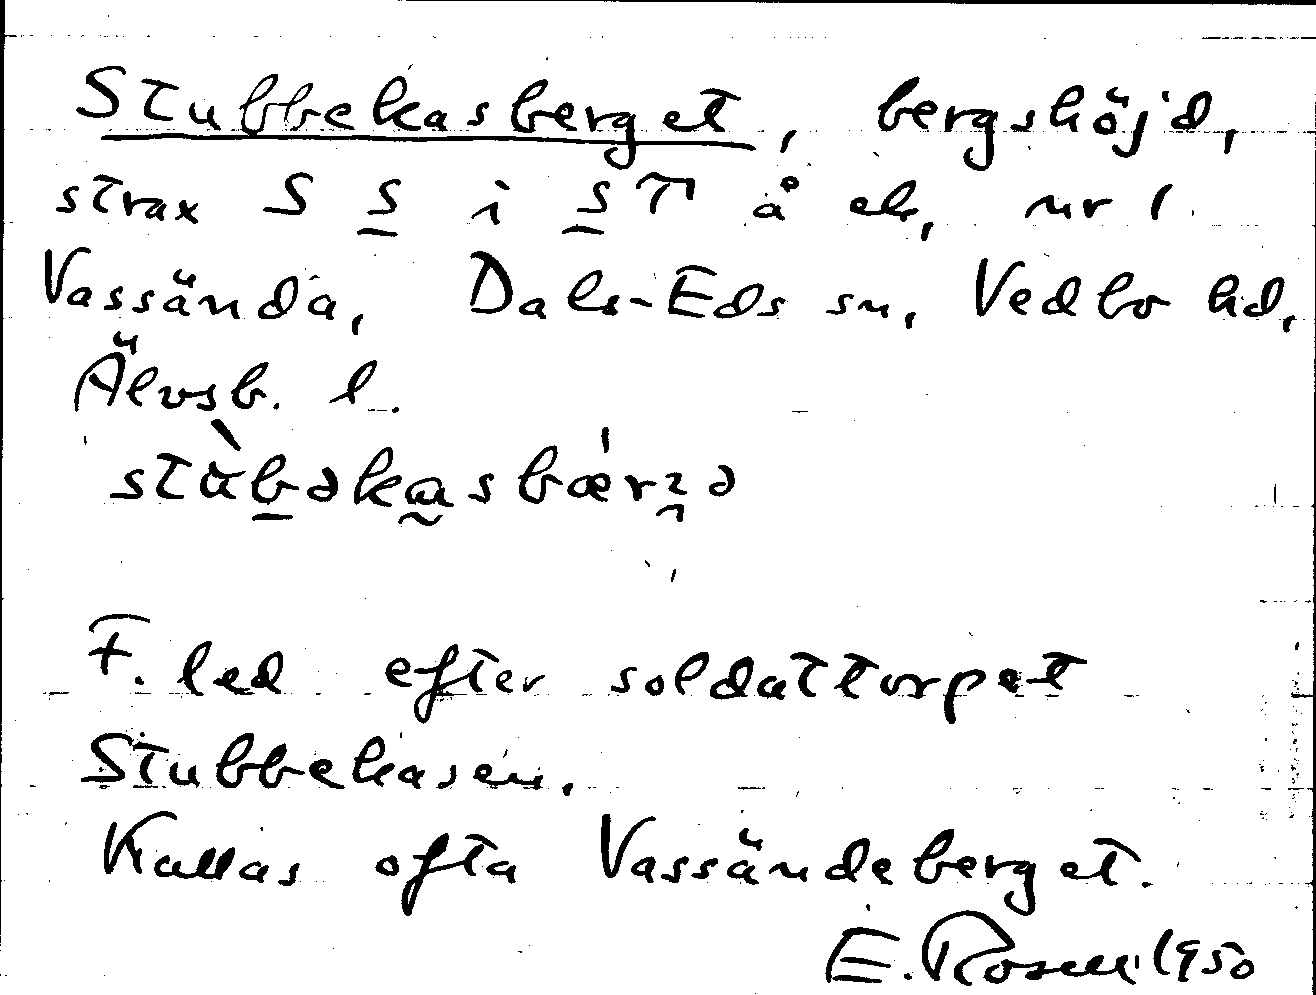 Stubbekasberget, bergshöjd,
strax S S i ST å ek, nr 1
Vassända, Dals-Eds sn, Vedbo hd,
Älvsb. l.
stùbəkasbær
F. led efter soldattorpet
Stubbekasen.
Kallas ofta Vassändeberget.
E. Rosell 1950